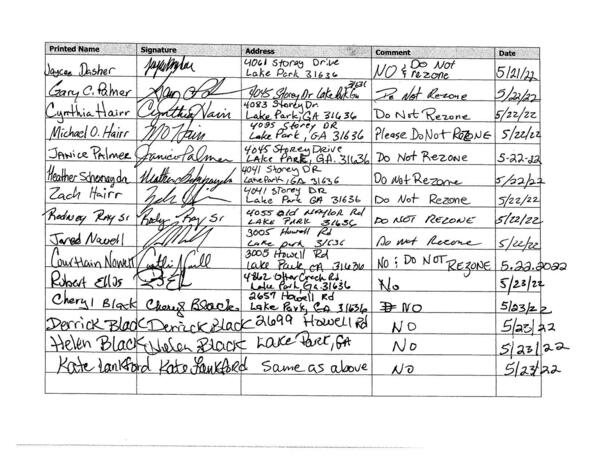 Printed Name Signature Address Comment Date
Jaycee Dasher 4061 Storey Drive Lake Park 31636 NO & Do Not rezone 5/21/22
Gary C. Palmer 4045 Storey Dr Lake Park Ga 31636 Do Not Rezone 5/22/22
Cynthia Hairr Cynthia Hairr 4083 Storey Dr. Lake Park, GA 31636 Do Not Rezone 5/22/22
Michael O. Hairr MO Hairr 4095 Storey DR Lake Park, GA 31636 Please Do Not Rezone 5/22/22
Janice Palmer Janice Palmer 4045 Storey Drive Lake Park, GA. 31636 Do Not Rezone 5-22-22
Heather 4041 Storey DR Lake Park, GA 31636 Do Not Rezone 5/22/22
Zach Hairr 4041 Storey DR Lake Park GA 31636 Do Not Rezone 5/22/22
Rodney Ray Sr Rodney Ray Sr 4055 Old Naylor Rd Lake Park 31636 Do NOT REZONE 5/22/22
Jared Nowell 3005 Howell Rd Lake park 31636 Do not Rezone 5/22/22
Nowell 3005 Howell Rd Lake Park GA 31636 NO; Do NOT REZONE 5.22.2022
Robert Ellis 4862 Creek Rd Lake Park Ga 31636 No 5/23/22
Cheryl Black Cheryl Black 2657 Howell Rd Lake Park, GA 31636 NO 5/23/22
Derrick Black Derrick Black 2699 Howell Rd NO 5/23/22
Helen Black Helen Black Lake Park, GA No 5/23/22
Kate Lankford Kate Lankford Same as above NO 5/23/22